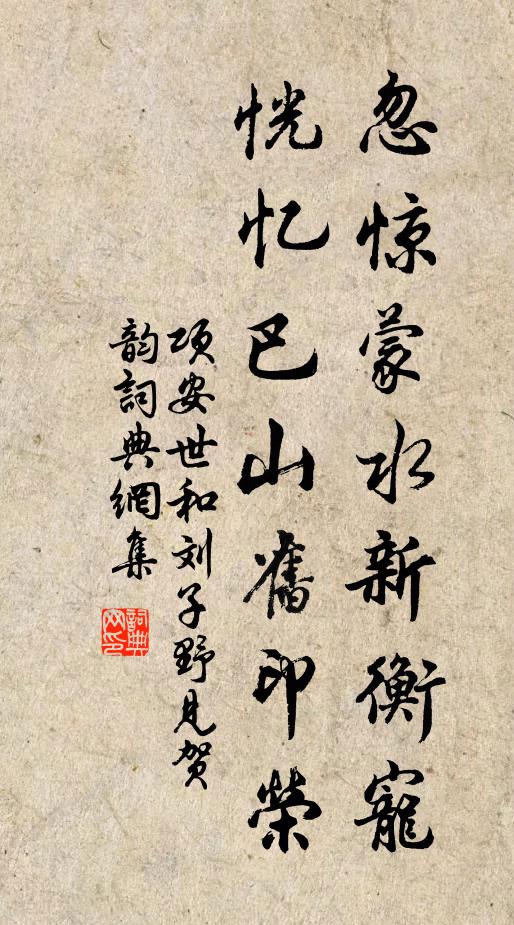 忽惊蒙水新衡寵
恍忆巴山舊印榮
项安世和刘子野見贺
韵詞典網集
詞典
网印